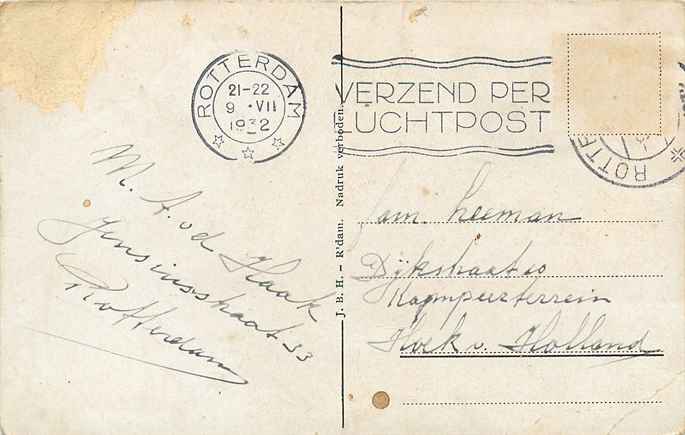 ROTTERDAM
21-22
9 · VII
1932
VERZEND PER
LUCHTPOST
ROTTE
M. A. v d Haak
Jensiusstraat 33
Rotterdam
J. B. H. – R'dam. Nadruk verboden.
Fam. Leeman
Dijkstraat 10
Kampeerterrein
Hoek v. Holland